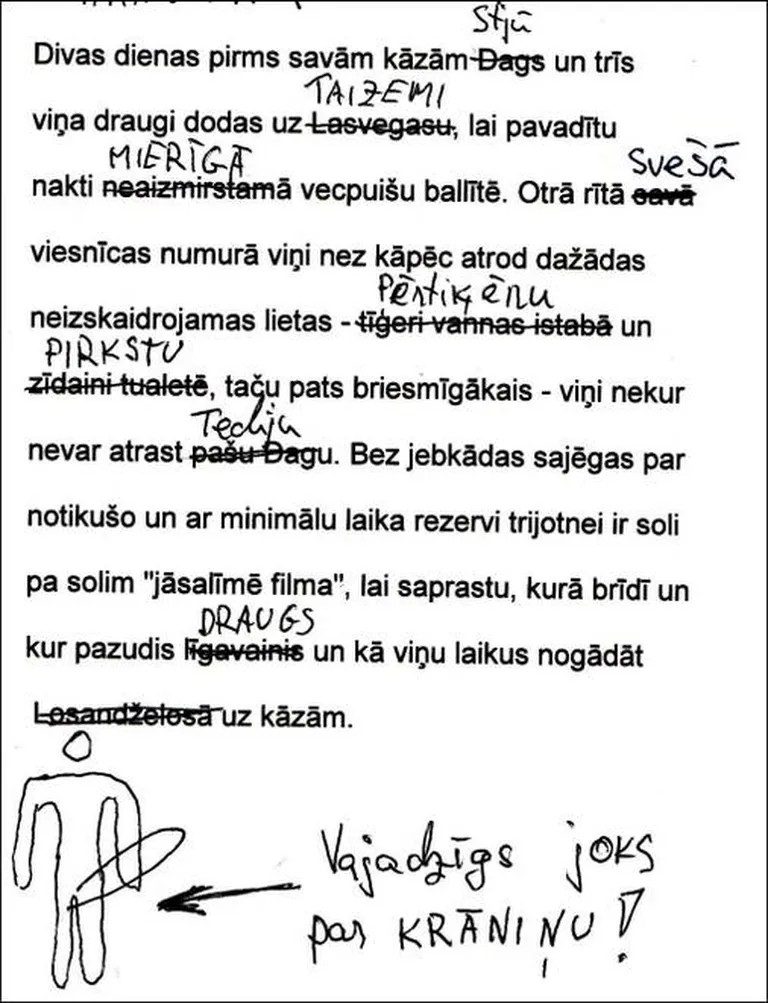 Stjū
Divas dienas pirms savām kāzām Dags un trīs
TAIZEMI
viņa draugi dodas uz Lasvegasu, lai pavadītu
MIERĪGĀ
Svešā
nakti neaizmirstamā vecpuišu ballītē. Otrā rītā savā
viesnīcas numurā viņi nez kāpēc atrod dažādas
Pērtiķēnu
neizskaidrojamas lietas - tīģeri vannas istabā un
PIRKSTU
zīdaini tualetē, taču pats briesmīgākais - viņi nekur
Tediju
nevar atrast pašu Dagu. Bez jebkādas sajēgas par
notikušo un ar minimālu laika rezervi trijotnei ir soli
pa solim "jāsalīmē filma", lai saprastu, kurā brīdī un
DRAUGS
kur pazudis līgavainis un kā viņu laikus nogādāt
Losandželosā uz kāzām.
Vajadzīgs joks
par KRĀNIŅU!